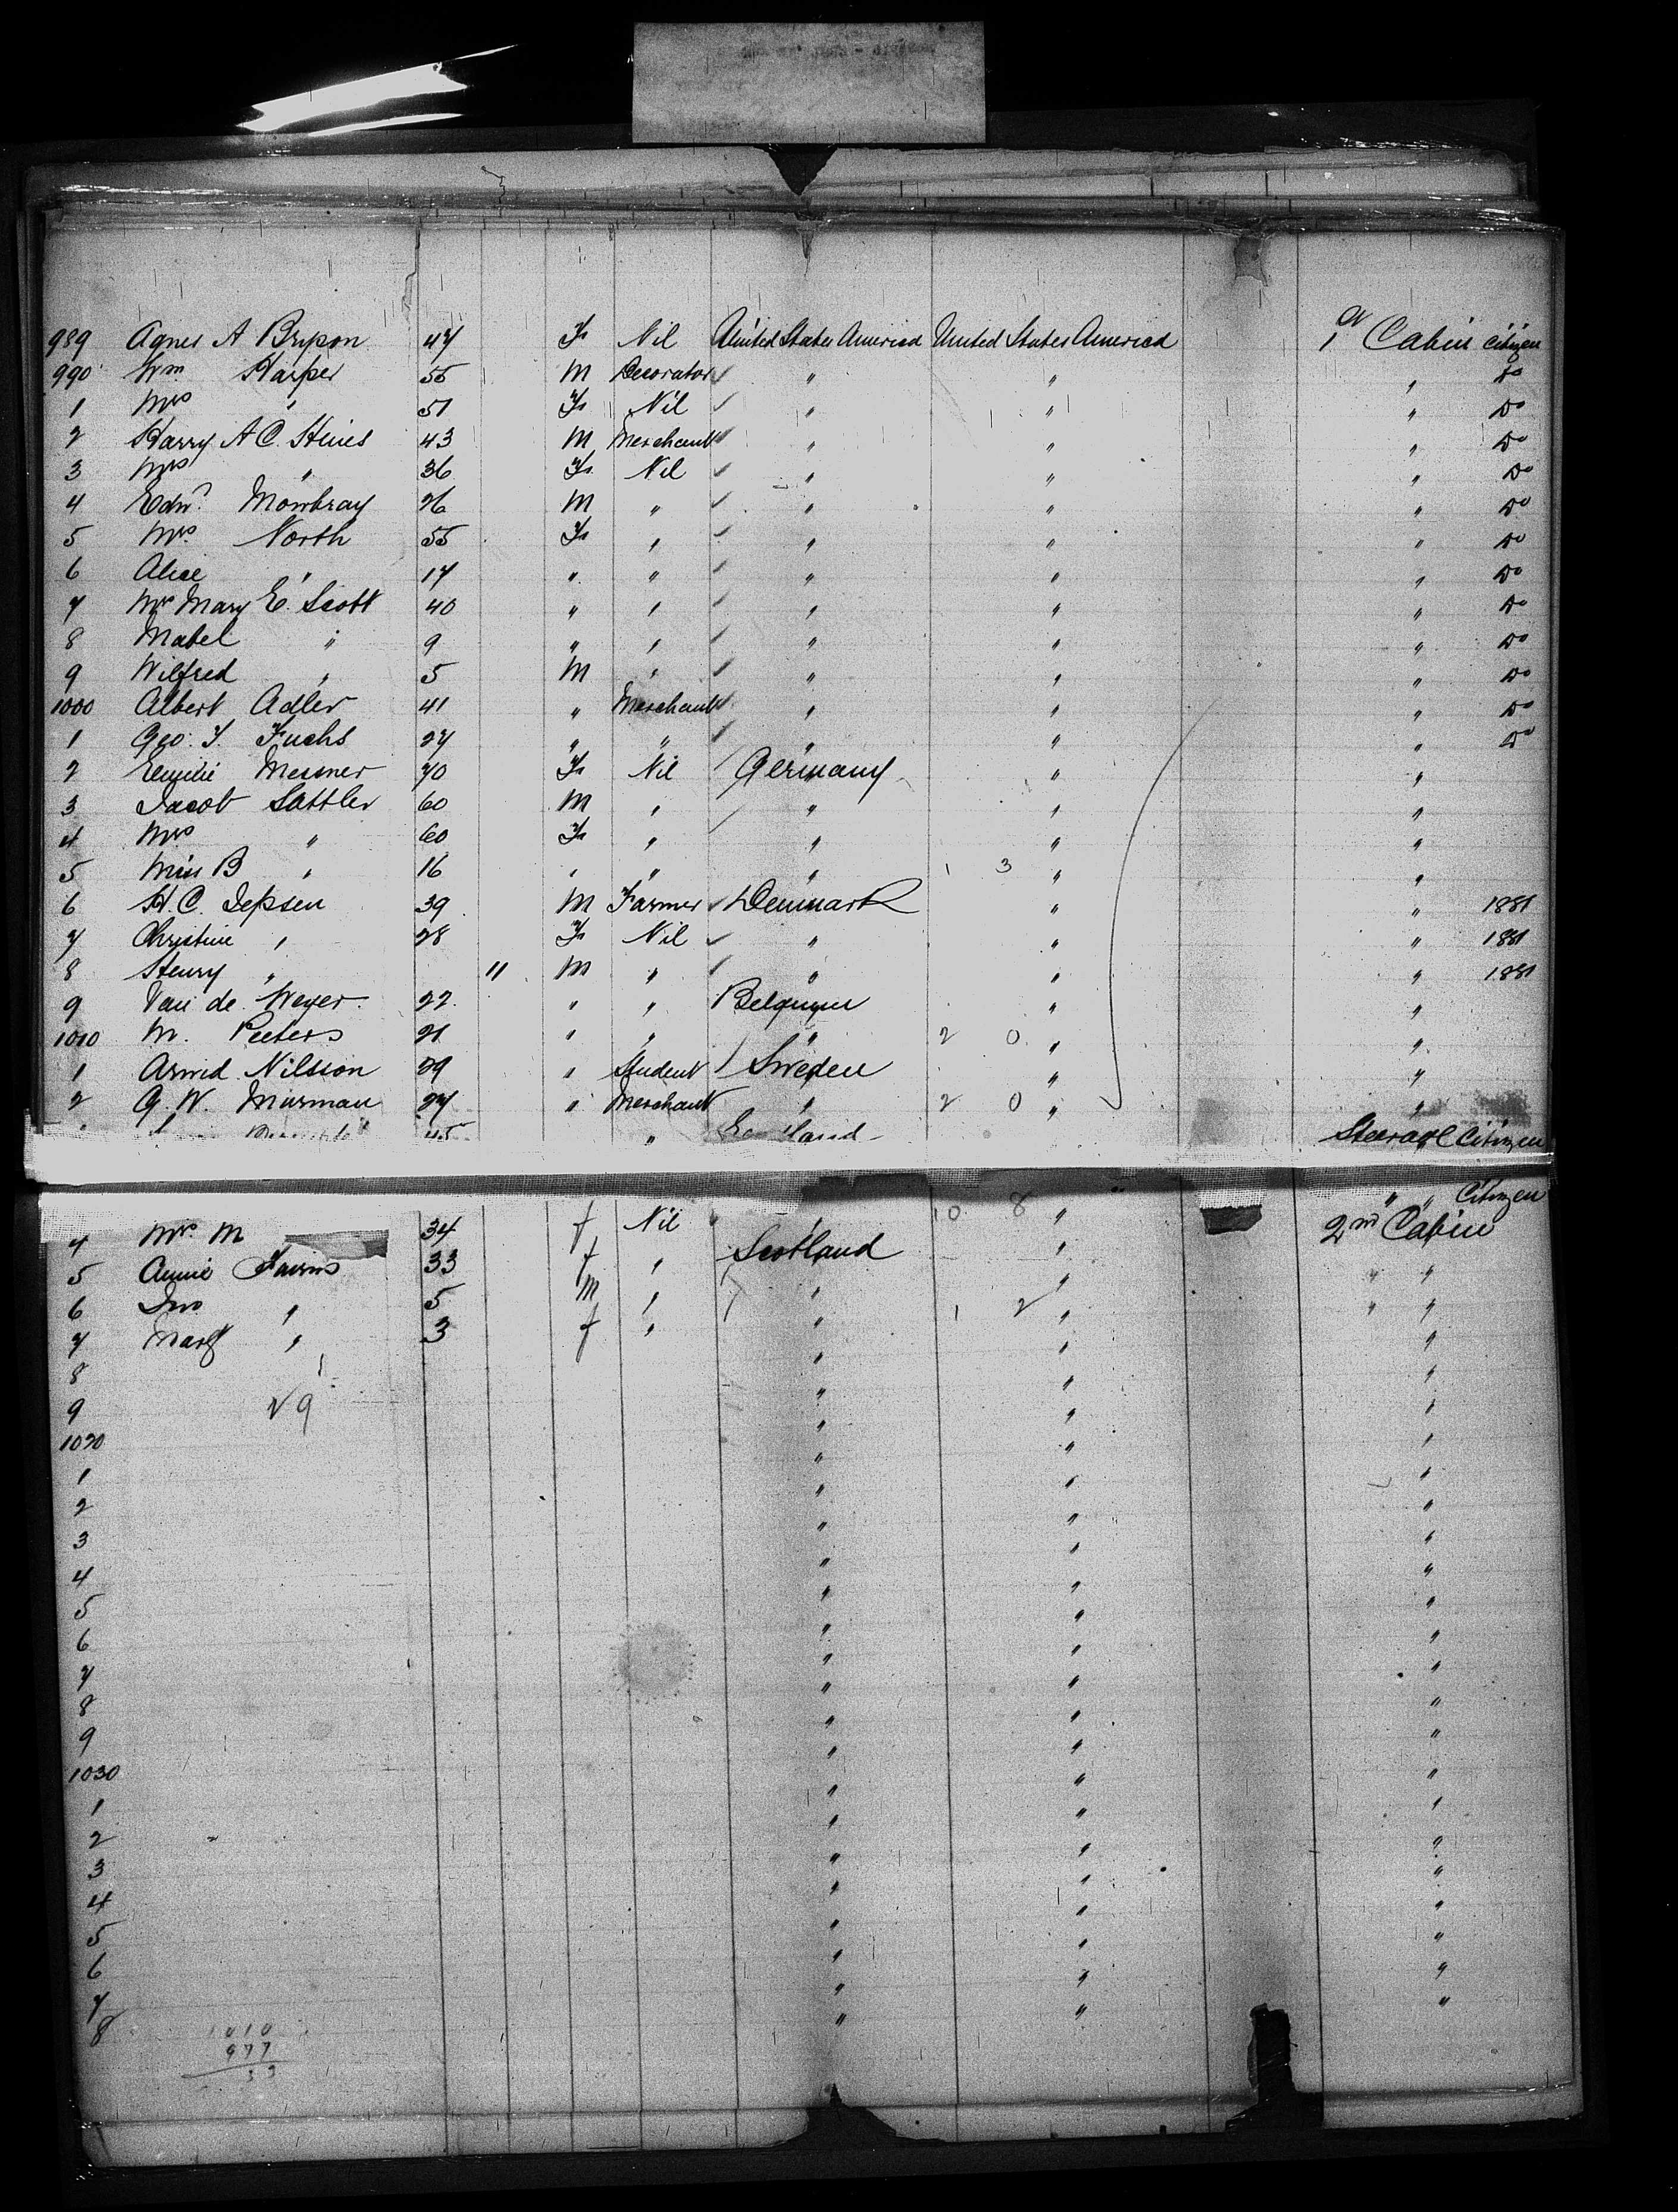 989 Agnes A Bryson 47 F Nil United States America United States America 1st Cabin Citizen
990 Wm Harper 55 M Decorator " " " Do
1 Mrs " 51 F Nil " " " Do
2 Harry A C. Hines 43 M Merchant " " " Do
3 Mrs " 36 F Nil " " " Do
4 Edwd Mowbray 26 M " " " " Do
5 Mrs North 55 F " " " " Do
6 Alice " 17 " " " " " Do
7 Mrs Mary E. Scott 40 " " " " " Do
8 Mabel " 9 " " " " " Do
9 Wilfred " 5 M " " " " Do
1000 Albert Adler 41 " Merchant " " " Do
1 Geo. F. Fuchs 27 " " " " " Do
2 Emilie Messner 70 F Nil Germany " "
3 Jacob Sattler 60 M " " " "
4 Mrs " 60 F " " " "
5 Miss B " 16 " " " 1 3 " "
6 H. C. Jepsen 39 M Farmer Denmark " " 1881
7 Christine " 28 F Nil " " " 1881
8 Henry " 11 M " " " " 1881
9 Van de Weyer 22 " " Belgium " "
1010 M. Peeters 21 " " " 2 0 " "
1 Arvid Nilsson 29 " Student Sweden " "
2 G. W. Murman 27 " Merchant " 2 0 " "
45 " Steerage Citizen
" " Citizen
4 Mrs M 34 f Nil " 10 8 " 2nd Cabin
5 Annie 33 f " Scotland " " "
6 Jno " 5 M " " " " "
7 Margt " 3 f " " 1 2 " "
8 " " "
9 29 " " "
1020 " " "
1 " " "
2 " " "
3 " " "
4 " " "
5 " " "
6 " " "
7 " " "
8 " " "
9 " " "
1030 " " "
1 " " "
2 " " "
3 " " "
4 " " "
5 " " "
6 " " "
7 " " "
8 " "
1010
977
33